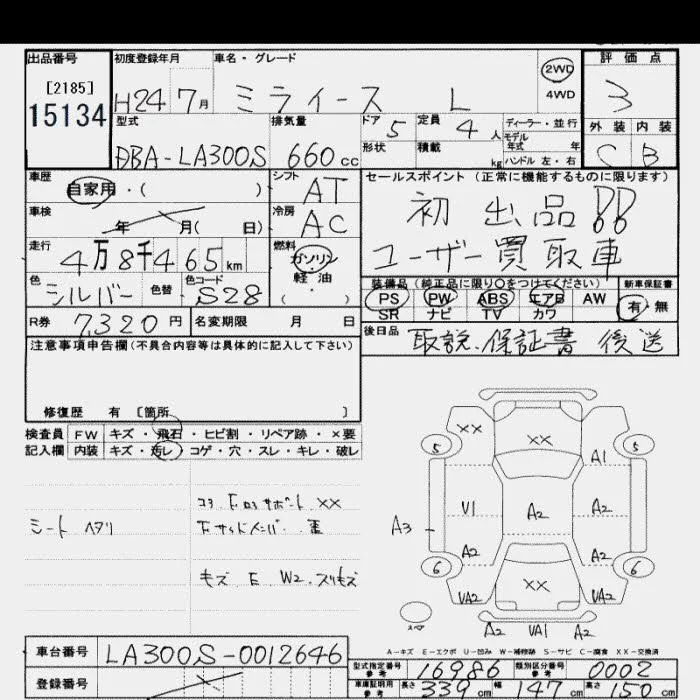 出品番号 初度登録年月 車名・グレード 2WD 評価点
[2185] 4WD
15134 H24 7月 ミライース L 3
型式 排気量 ドア 5 定員 4人 ディーラー・並行 外装 内装
モデル年式 年
形状 積載 kg ハンドル 左・右
DBA-LA300S 660cc C B
車歴 自家用・( ) シフト AT セールスポイント (正常に機能するものに限ります)
車検 年 月( 日) 冷房 AC 初出品!!
走行 4万8千465km 燃料 ガソリン ユーザー買取車
軽油
( )
色 シルバー 色替 色コード S28 装備品(純正品に限り○をつけてください) 新車保証書
PS PW ABS エアB AW 有・無
SR ナビ TV カワ
R券 7,320円 名変期限 月 日 後日品 取説、保証書 後送
注意事項申告欄(不具合内容等は具体的に記入して下さい)
修復歴 有 [箇所 ]
検査員 FW キズ・飛石・ヒビ割・リペア跡・×要
記入欄 内装 キズ・汚レ・コゲ・穴・スレ・キレ・破レ
XX XX
5 5
A1
V1 A2 A2
A3
A2 A2
6 6
XX
VA2 VA2
A2 VA1 A2
シート ヘタリ
サポート XX
キズ E W2 スリキズ
A-キズ E-エクボ U-凹み W-補修跡 S-サビ C-腐食 XX-交換済
車台番号 LA300S-0012646
登録番号
型式指定番号 参考 16986 類別区分番号 参考 0002
車庫証明用 参考 長さ 339cm 幅 147cm 高さ 150cm